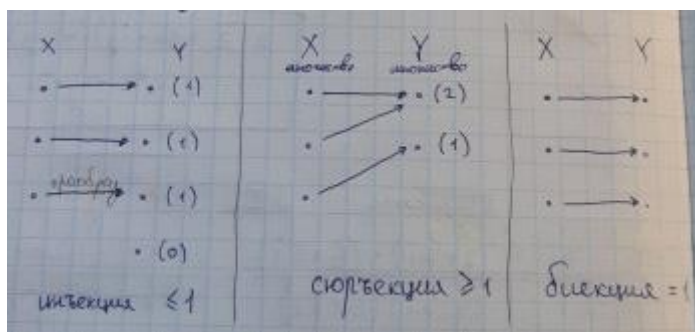 X Y
(1)
(1)
прообраз (1)
(0)
инъекция ≤1
X Y
множество множество
(2)
(1)
сюръекция ≥1
X Y
биекция =1